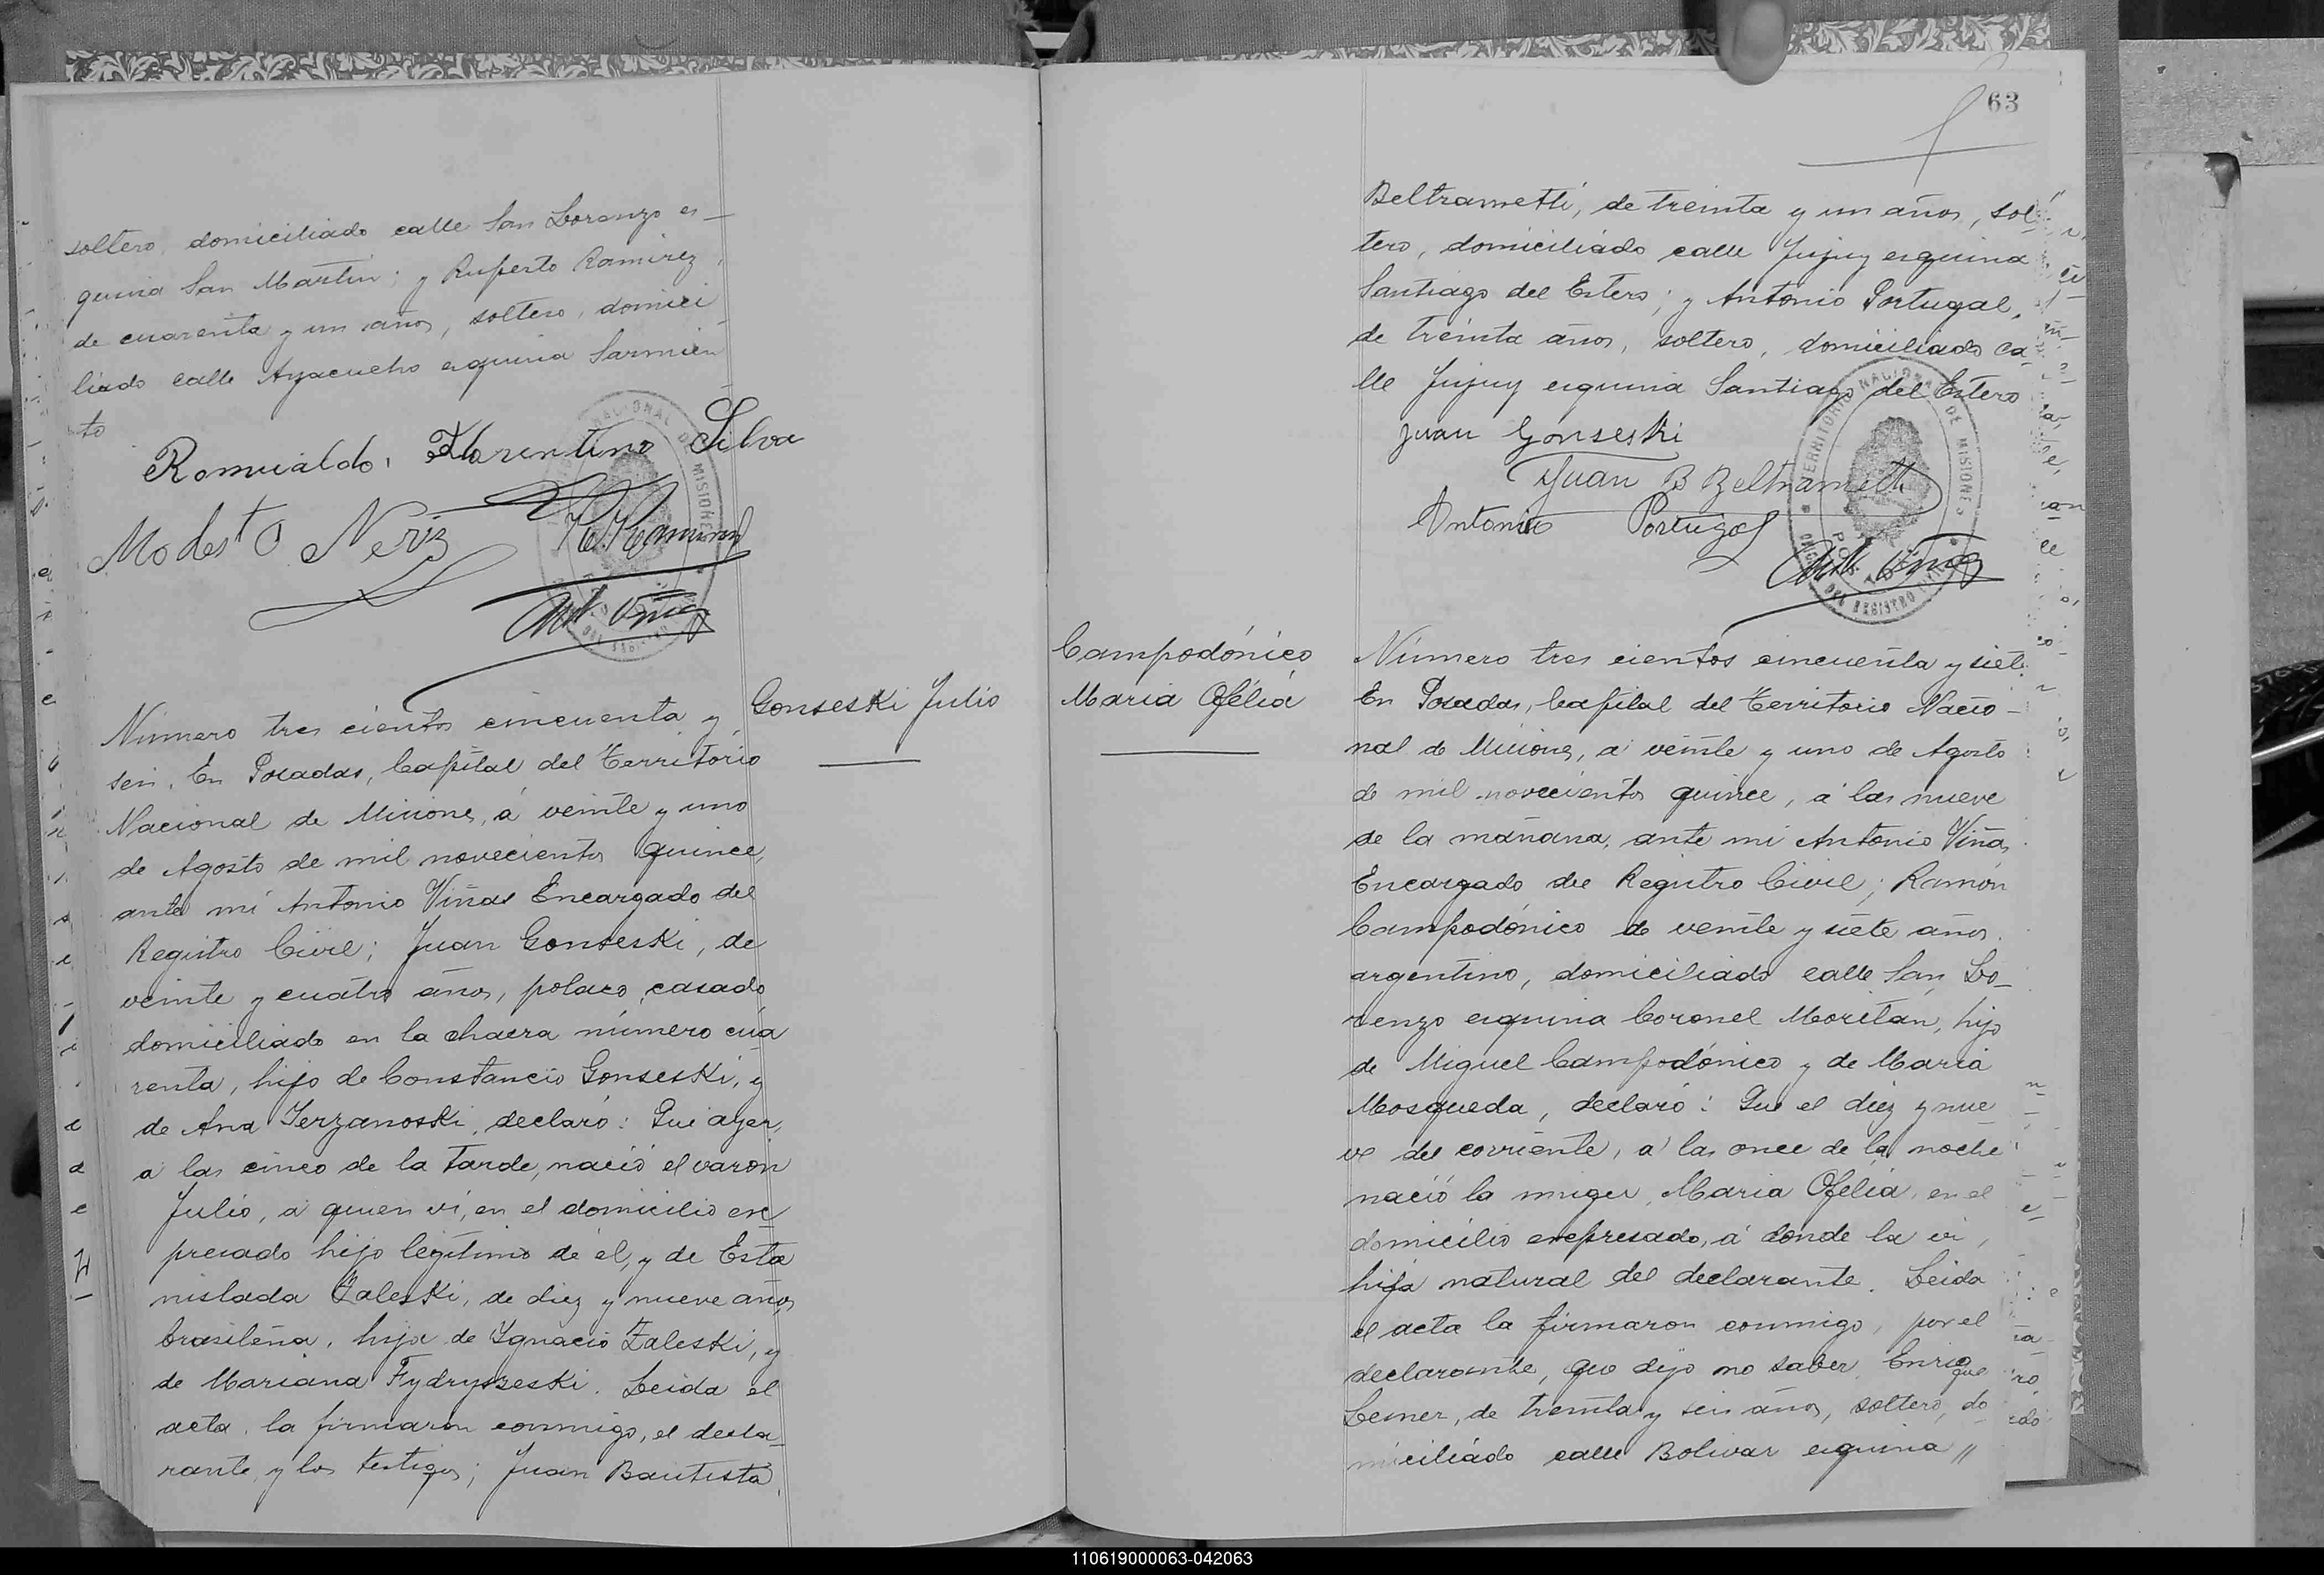 soltero, domiciliado calle San Lorenzo es_
quina San Martín; y Ruperto Ramirez,
de cuarenta y un años, soltero, domici_
liado calle Ayacucho esquina Sarmien_
to
Romualdo, Florentino Silva
Modesto Neriz R. Ramirez
Ant. Viñas
Número tres cientos cincuenta y
seis. En Posadas, Capital del Territorio
Nacional de Misiones, á veinte y uno
de Agosto de mil novecientos quince,
ante mí Antonio Viñas Encargado del
Registro Civil; Juan Gonseski, de
veinte y cuatro años, polaco, casado
domiciliado en la chacra número cua
renta, hijo de Constancio Gonseski, y
de Ana Jerzanoski, declaró: Que ayer,
á las cinco de la tarde, nació el varon
Julio, á quien ví, en el domicilio ex
presado hijo legítimo de él, y de Esta
nislada Zaleski, de diez y nueve años
brasileña, hija de Ignacio Zaleski, y
de Mariana Fydryszeski. Leida el
acta, la firmaron conmigo, el decla_
rante y los testigos; Juan Bautista
Gonseski Julio
63
Beltrametti, de treinta y un años, sol
tero, domiciliado calle Jujuy esquina
Santiago del Estero; y Antonio Portugal,
de treinta años, soltero, domiciliado ca_
lle Jujuy esquina Santiago del Estero
Juan Gonseski
Juan B Beltrametti
Antonio Portugal
Ant. Viñas
TERRITORIO NACIONAL DE MISIONES
DEL REGISTRO CIVIL
Campodónico
Maria Ofélia
Número tres cientos cincuenta y siete.
En Posadas, Capital del Territorio Nacio_
nal de Misiones, á veinte y uno de Agosto
de mil novecientos quince, á las nueve
de la mañana, ante mí Antonio Viñas,
Encargado del Registro Civil; Ramón
Campodónico de veinte y siete años,
argentino, domiciliado calle San Lo_
renzo esquina Coronel Moritán, hijo
de Miguel Campodónico y de Maria
Mosqueda, declaró: Que el diez y nue
ve del corriente, á las once de la noche
nació la muger Maria Ofélia, en el
domicilio expresado, á donde la ví,
hija natural del declarante. Leida
el acta la firmaron conmigo, por el
declarante, que dijo no saber, Enrique
Lesner, de treinta y seis años, soltero, do
miciliado calle Bolivar esquina "
110619000063-042063